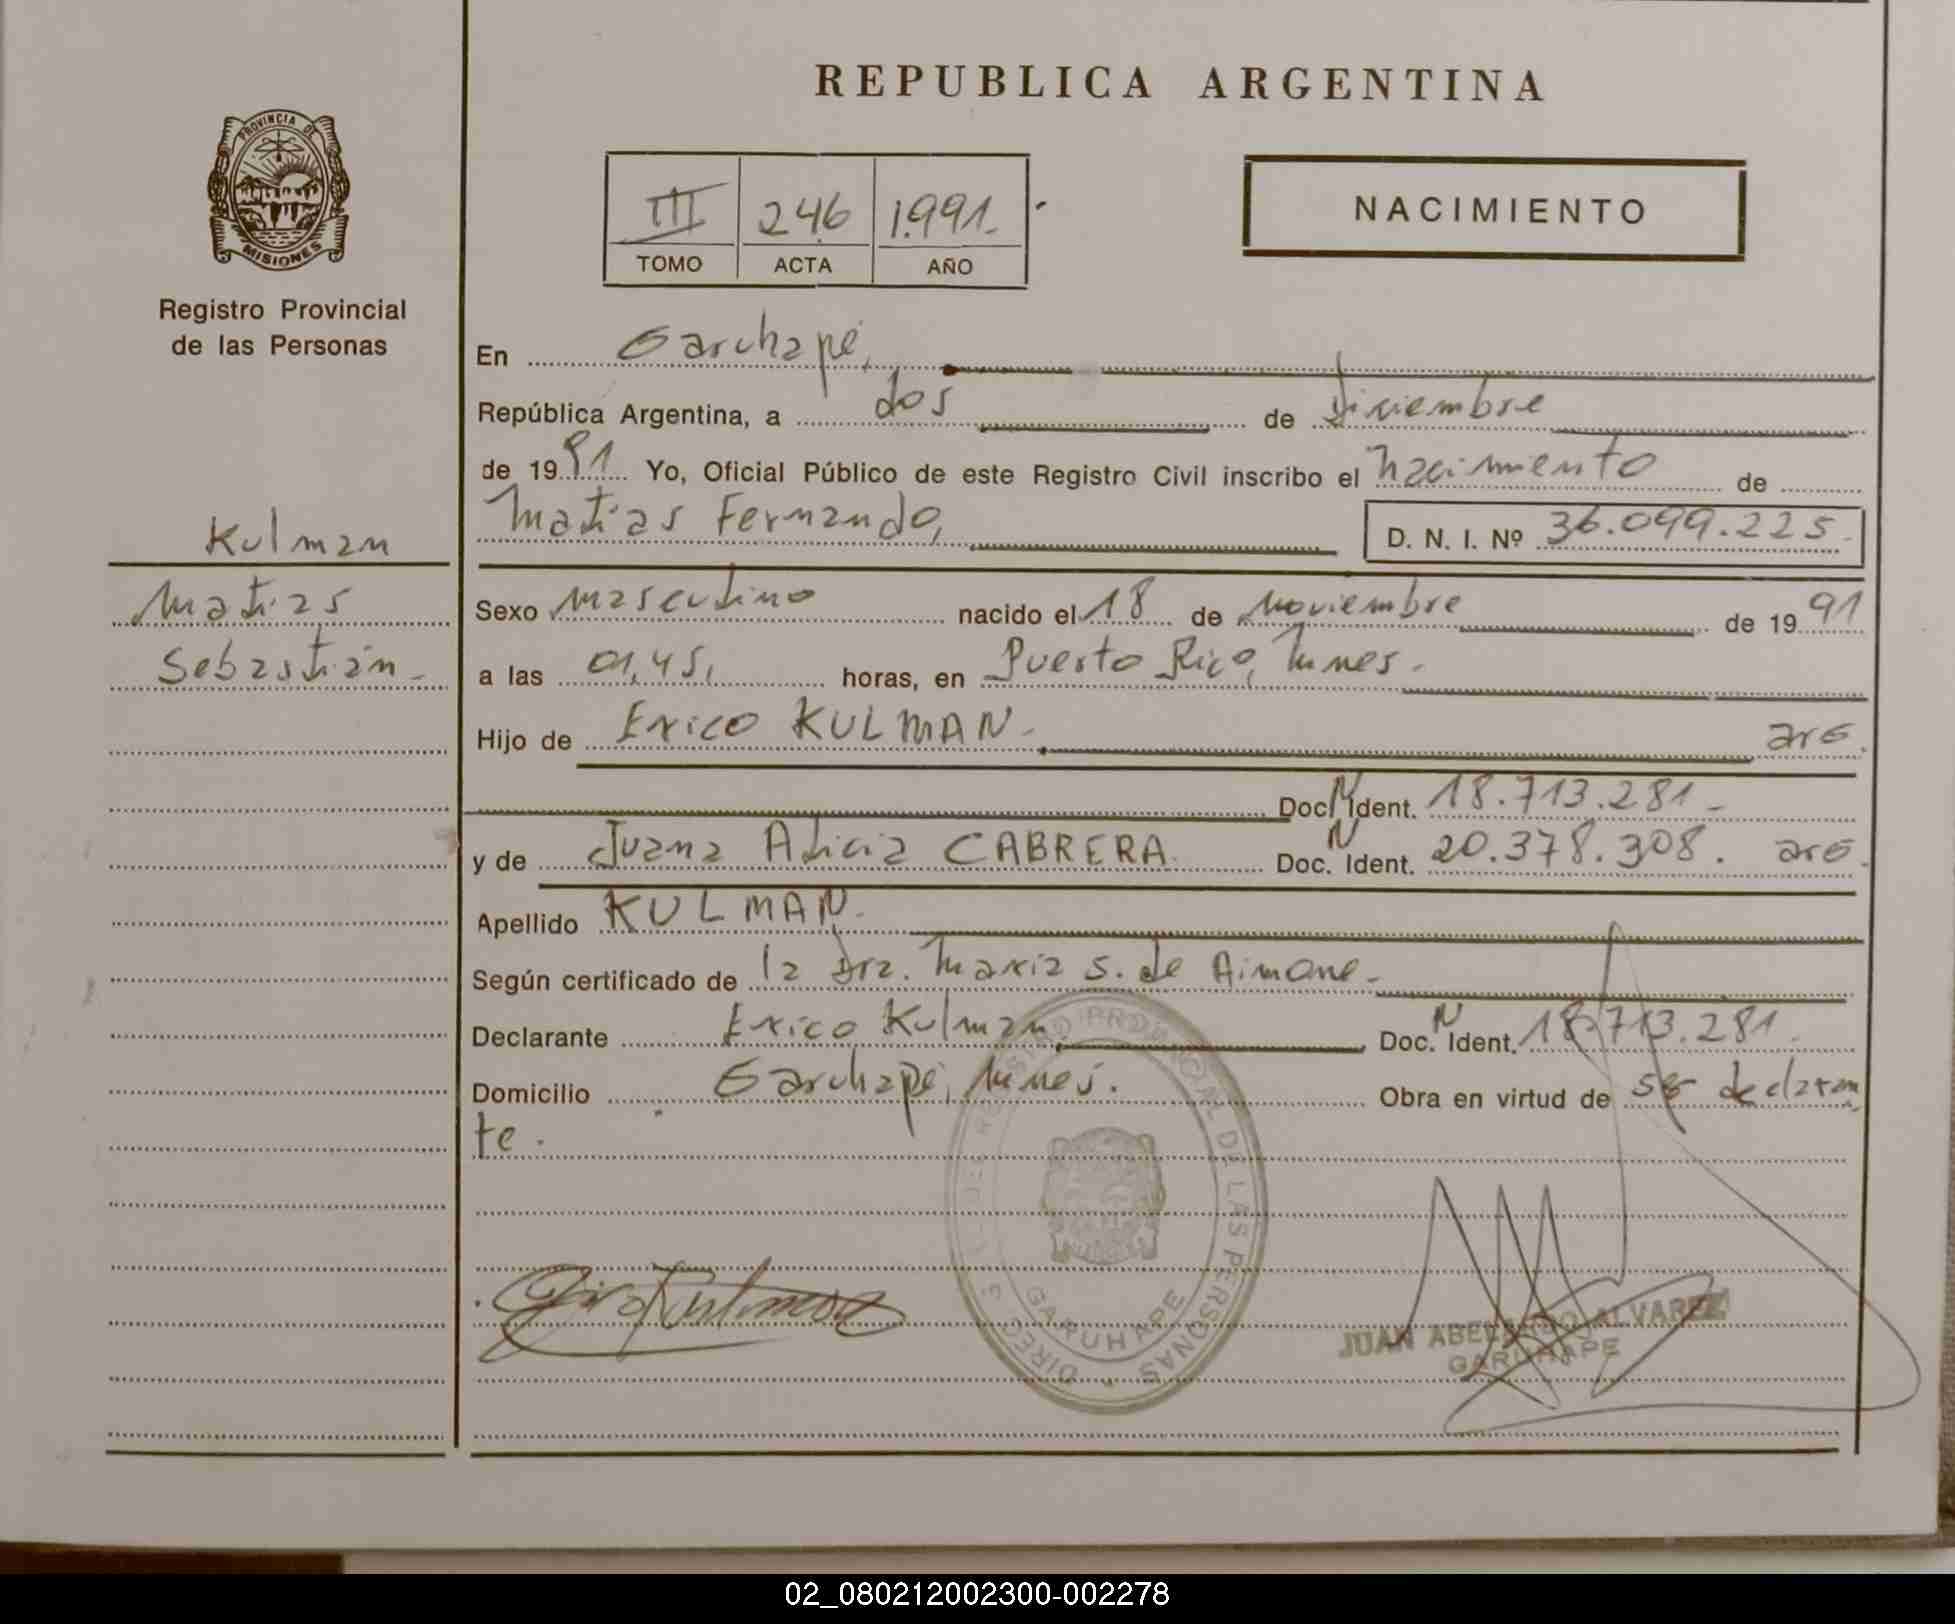 REPUBLICA ARGENTINA
PROVINCIA DE
MISIONES
Registro Provincial
de las Personas
III 246 1.991.-
TOMO ACTA AÑO
NACIMIENTO
En Garuhapé,
República Argentina, a dos de diciembre
de 1991 Yo, Oficial Público de este Registro Civil inscribo el nacimiento de
Matias Fernando, D. N. I. Nº 36.099.225.-
Kulman
Matias
Sebastián.-
Sexo masculino nacido el 18 de noviembre de 1991
a las 01,45, horas, en Puerto Rico, Mnes.-
Hijo de Erico KULMAN.- arg.
Doc. N Ident. 18.713.281.-
y de Juana Alicia CABRERA. Doc. N Ident. 20.378.308. arg.
Apellido KULMAN.-
Según certificado de la Dra. Maria S. de Aimone.-
Declarante Erico Kulman Doc. N Ident. 18.713.281.
Domicilio Garuhapé, Mnes. Obra en virtud de ser declaran
te.
REGISTRO PROVINCIAL DE LAS PERSONAS
GARUHAPE
JUAN ABELARDO ALVAREZ
GARUHAPE
02_080212002300-002278